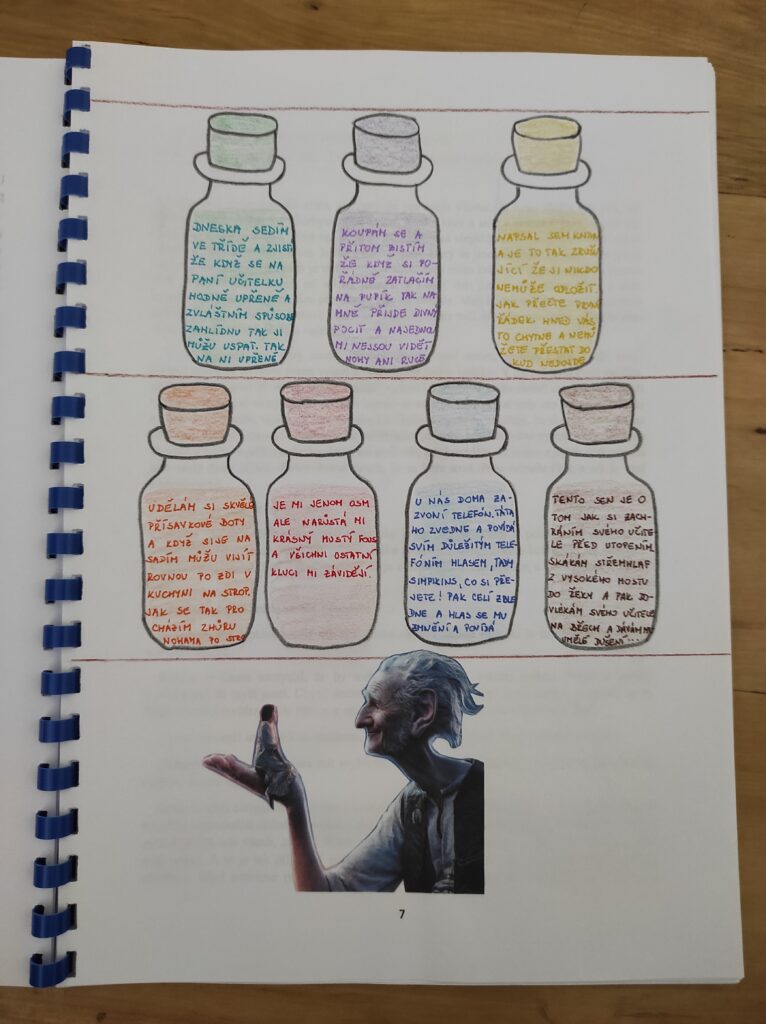 DNESKA SEDÍM
VE TŘÍDĚ A ZJISTÍ
ŽE KDYŽ SE NA
PANÍ UČITELKU
HODNĚ UPŘENĚ A
ZVLÁŠTNÍM SPŮSOB
ZAHLÍDNU TAK JI
MŮŽU USPAT. TAK
NA NI UPŘENĚ
KOUPÁM SE A
PŘITOM ZISTÍM
ŽE KDYŽ SI PO-
ŘÁDNĚ ZATLAČÍM
NA PUPÍK TAK NA
MNĚ PŘIJDE DIVNÝ
POCIT A NAJEDNOU
MI NEJSOU VIDĚT
NOHY ANI RUCE
NAPSAL SEM KNIHU
A JE TO TAK ZRUŠU
JÍCÍ ŽE JI NIKDO
NEMŮŽE ODLOŽIT
JAK PŘEČTE PRVNÍ
ŘÁDEK. HNED VÁS
TO CHYTNE A NEMŮ
ŽETE PŘESTAT DO
KUD NEDOJDE
UDĚLÁM SI SKVĚLO
PŘÍSAVKOVÉ BOTY
A KDYŽ SI JE NA
SADÍM MŮŽU VIJÍT
ROVNOU PO ZDI V
KUCHYNI NA STROP.
JAK SE TAK PRO
CHÁZÍM ZHŮRU
NOHAMA PO STRO
JE MI JENOM OSM
ALE NARŮSTÁ MI
KRÁSNÝ HUSTÝ FOUS
A VŠICHNI OSTATNÍ
KLUCI MI ZÁVIDĚJÍ.
U NÁS DOMA ZA-
ZVONÍ TELEFÓN. TÁTA
HO ZVEDNE A POVÍDÁ
SVÍM DŮLEŽITÝM TELE-
FÓNÍM HLASEM, TADY
SIMPKINS, CO SI PŘE-
JETE! PAK CELÍ ZBLE
DNE A HLAS SE MU
ZMNĚNÍ A POVÍDÁ
TENTO SEN JE O
TOM JAK SI ZACH-
RÁNÍM SVÉHO UČITE
LE PŘED UTOPENÍM
SKÁKÁM STŘEMHLAF
Z VYSOKÉHO MOSTU
DO ŘEKY A PAK DO-
VLÉKÁM SVÉHO UČITELE
NA BŘECH A DÁVÁM MU
UMĚLÉ DÚŠENÍ...
7